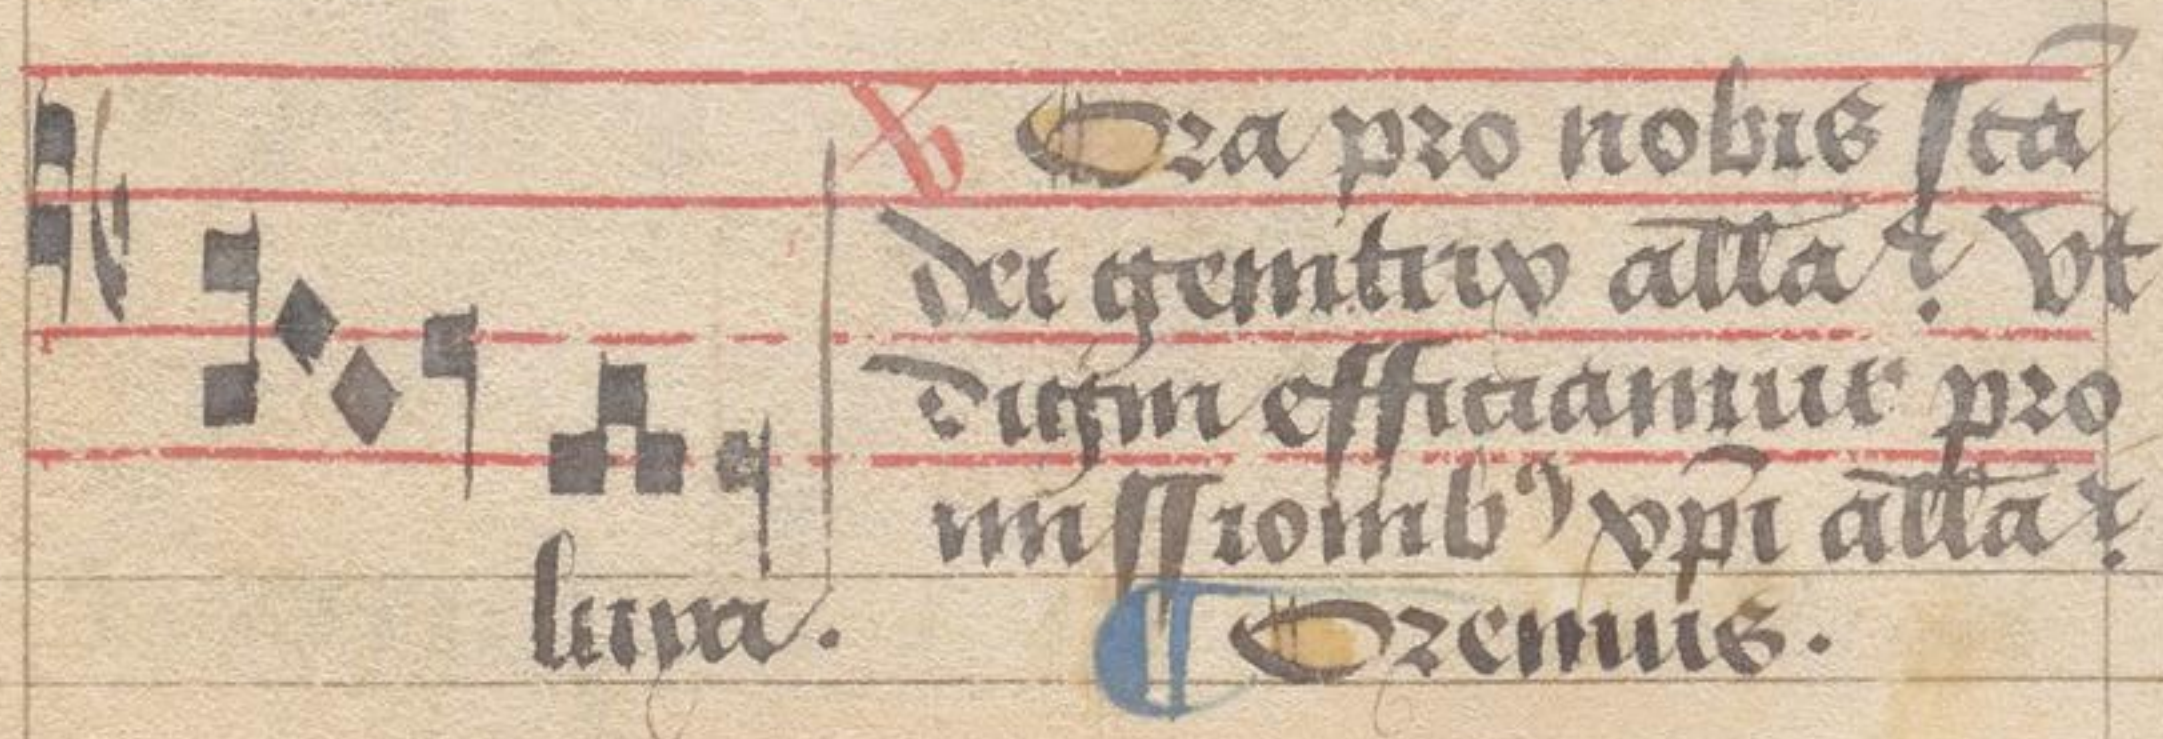 ℣ Ora pro nobis sc̄a
dei genitrix all̄a ꝛ. vt
digni efficiamur pro
missionibꝰ xp̄i all̄a ꝛ.
luya. ¶ Oremus.